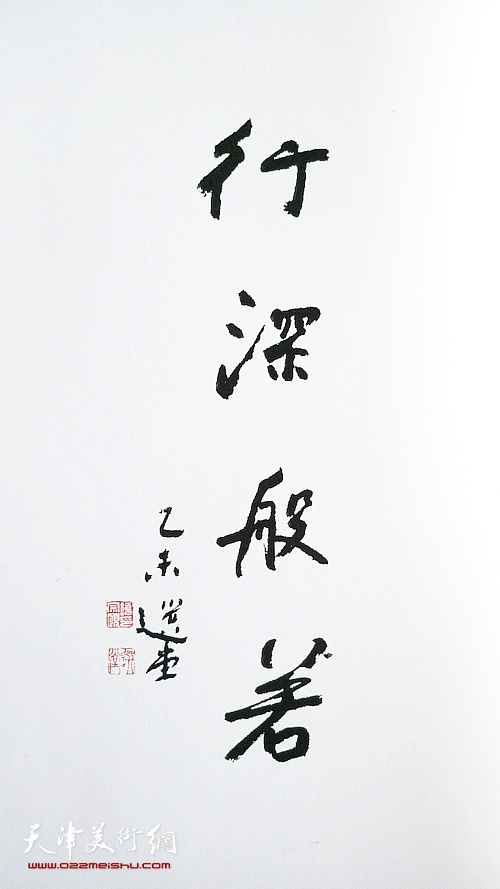 行深般若
乙未選堂
天津美術網
www.022meishu.com